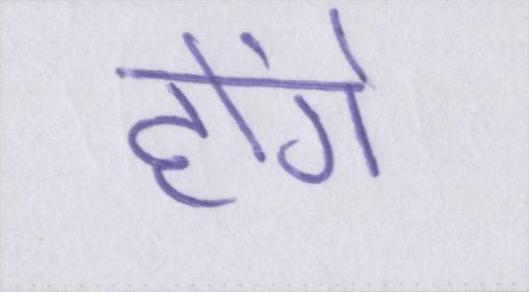 होंगे